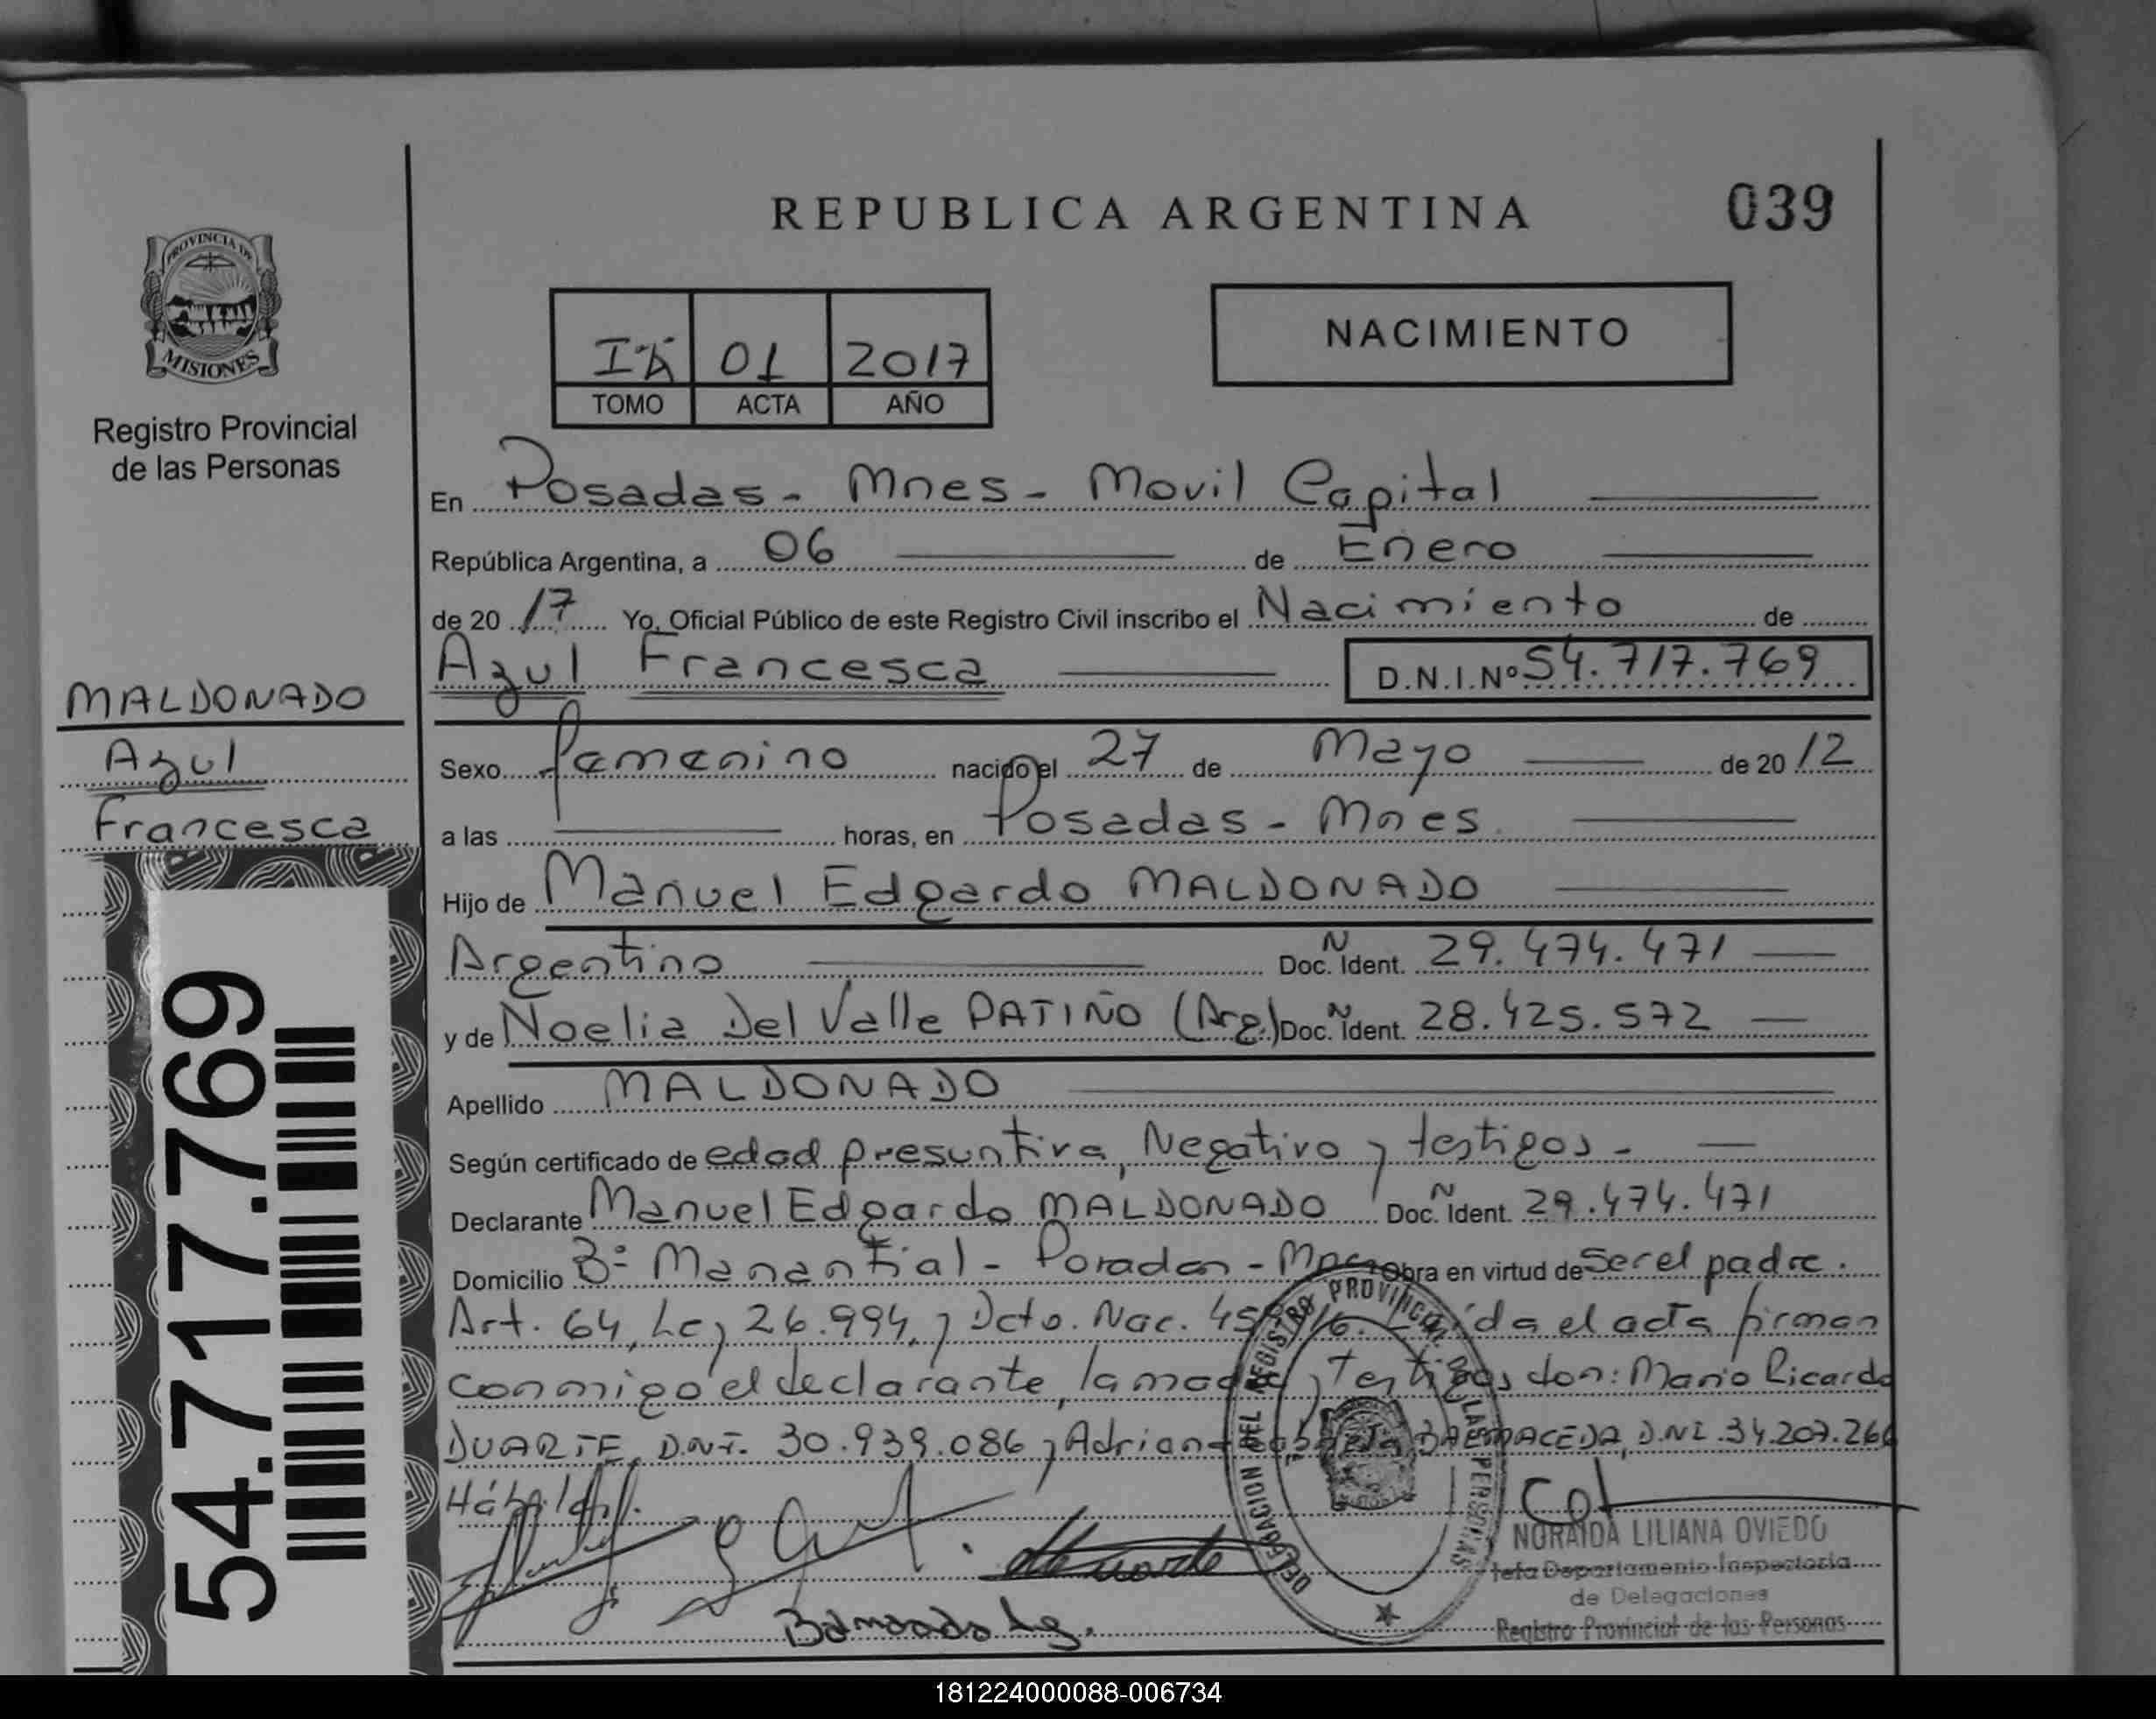 REPUBLICA ARGENTINA
039
PROVINCIA DE
MISIONES
Registro Provincial
de las Personas
01 2017
TOMO ACTA AÑO
NACIMIENTO
En Posadas - Mnes - Movil Capital
República Argentina, a 06 de Enero
de 20 17 Yo, Oficial Público de este Registro Civil inscribo el Nacimiento de
Azul Francesca D.N.I.Nº 54.717.769
MALDONADO
Azul
Francesca
54.717.769
Sexo femenino nacido el 27 de Mayo de 20 12
a las horas, en Posadas - Mnes
Hijo de Manuel Edgardo MALDONADO
Argentino Doc. Ñ Ident. 29.474.471
y de Noelia Del Valle PATIÑO (Arg.) Doc. Ñ Ident. 28.425.572
Apellido MALDONADO
Según certificado de edad presuntiva, Negativo y testigos -
Declarante Manuel Edgardo MALDONADO Doc. Ñ Ident. 29.474.471
Domicilio Bº Manantial - Posadas - Mnes Obra en virtud de ser el padre.
Art. 64, Ley 26.994, y Dcto. Nac. Leída el acta firman
conmigo el declarante, la madre y testigos don: Mario Ricardo
DUARTE, D.N.I. 30.939.086 y Adriana BALMACEDA, D.N.I. 34.207.266
Hábiles.
DELEGACION DEL REGISTRO PROVINCIAL DE LAS PERSONAS
NORAIDA LILIANA OVIEDO
Jefa Departamento Inspectoria
de Delegaciones
Registro Provincial de las Personas
181224000088-006734